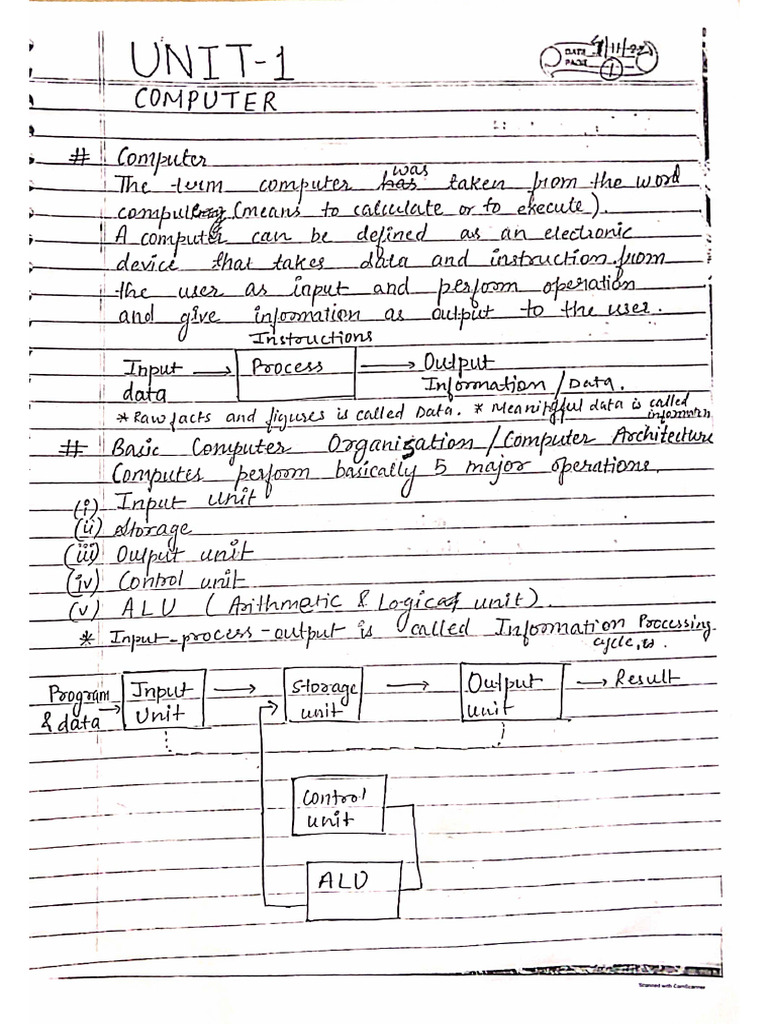 UNIT-1
DATE
PAGE 1
COMPUTER
# Computer
The term computer was taken from the word
(means to calculate or to execute).
A computer can be defined as an electronic
device that takes data and instruction from
the user as input and perform operation
and give information as output to the user.
Instructions
Input data → Process → Output
Information / Data.
* Raw facts and figures is called Data. * Meaningful data is called
# Basic Computer Organisation / Computer Architecture
Computer perform basically 5 major operations.
(i) Input unit
(ii) Storage
(iii) Output unit
(iv) Control unit
(v) ALU (Arithmetic & Logical unit).
* Input-process-output is called Information Processing
cycle
Program & data → Input Unit → Storage unit → Output unit → Result
Control unit
ALU
Scanned with CamScanner